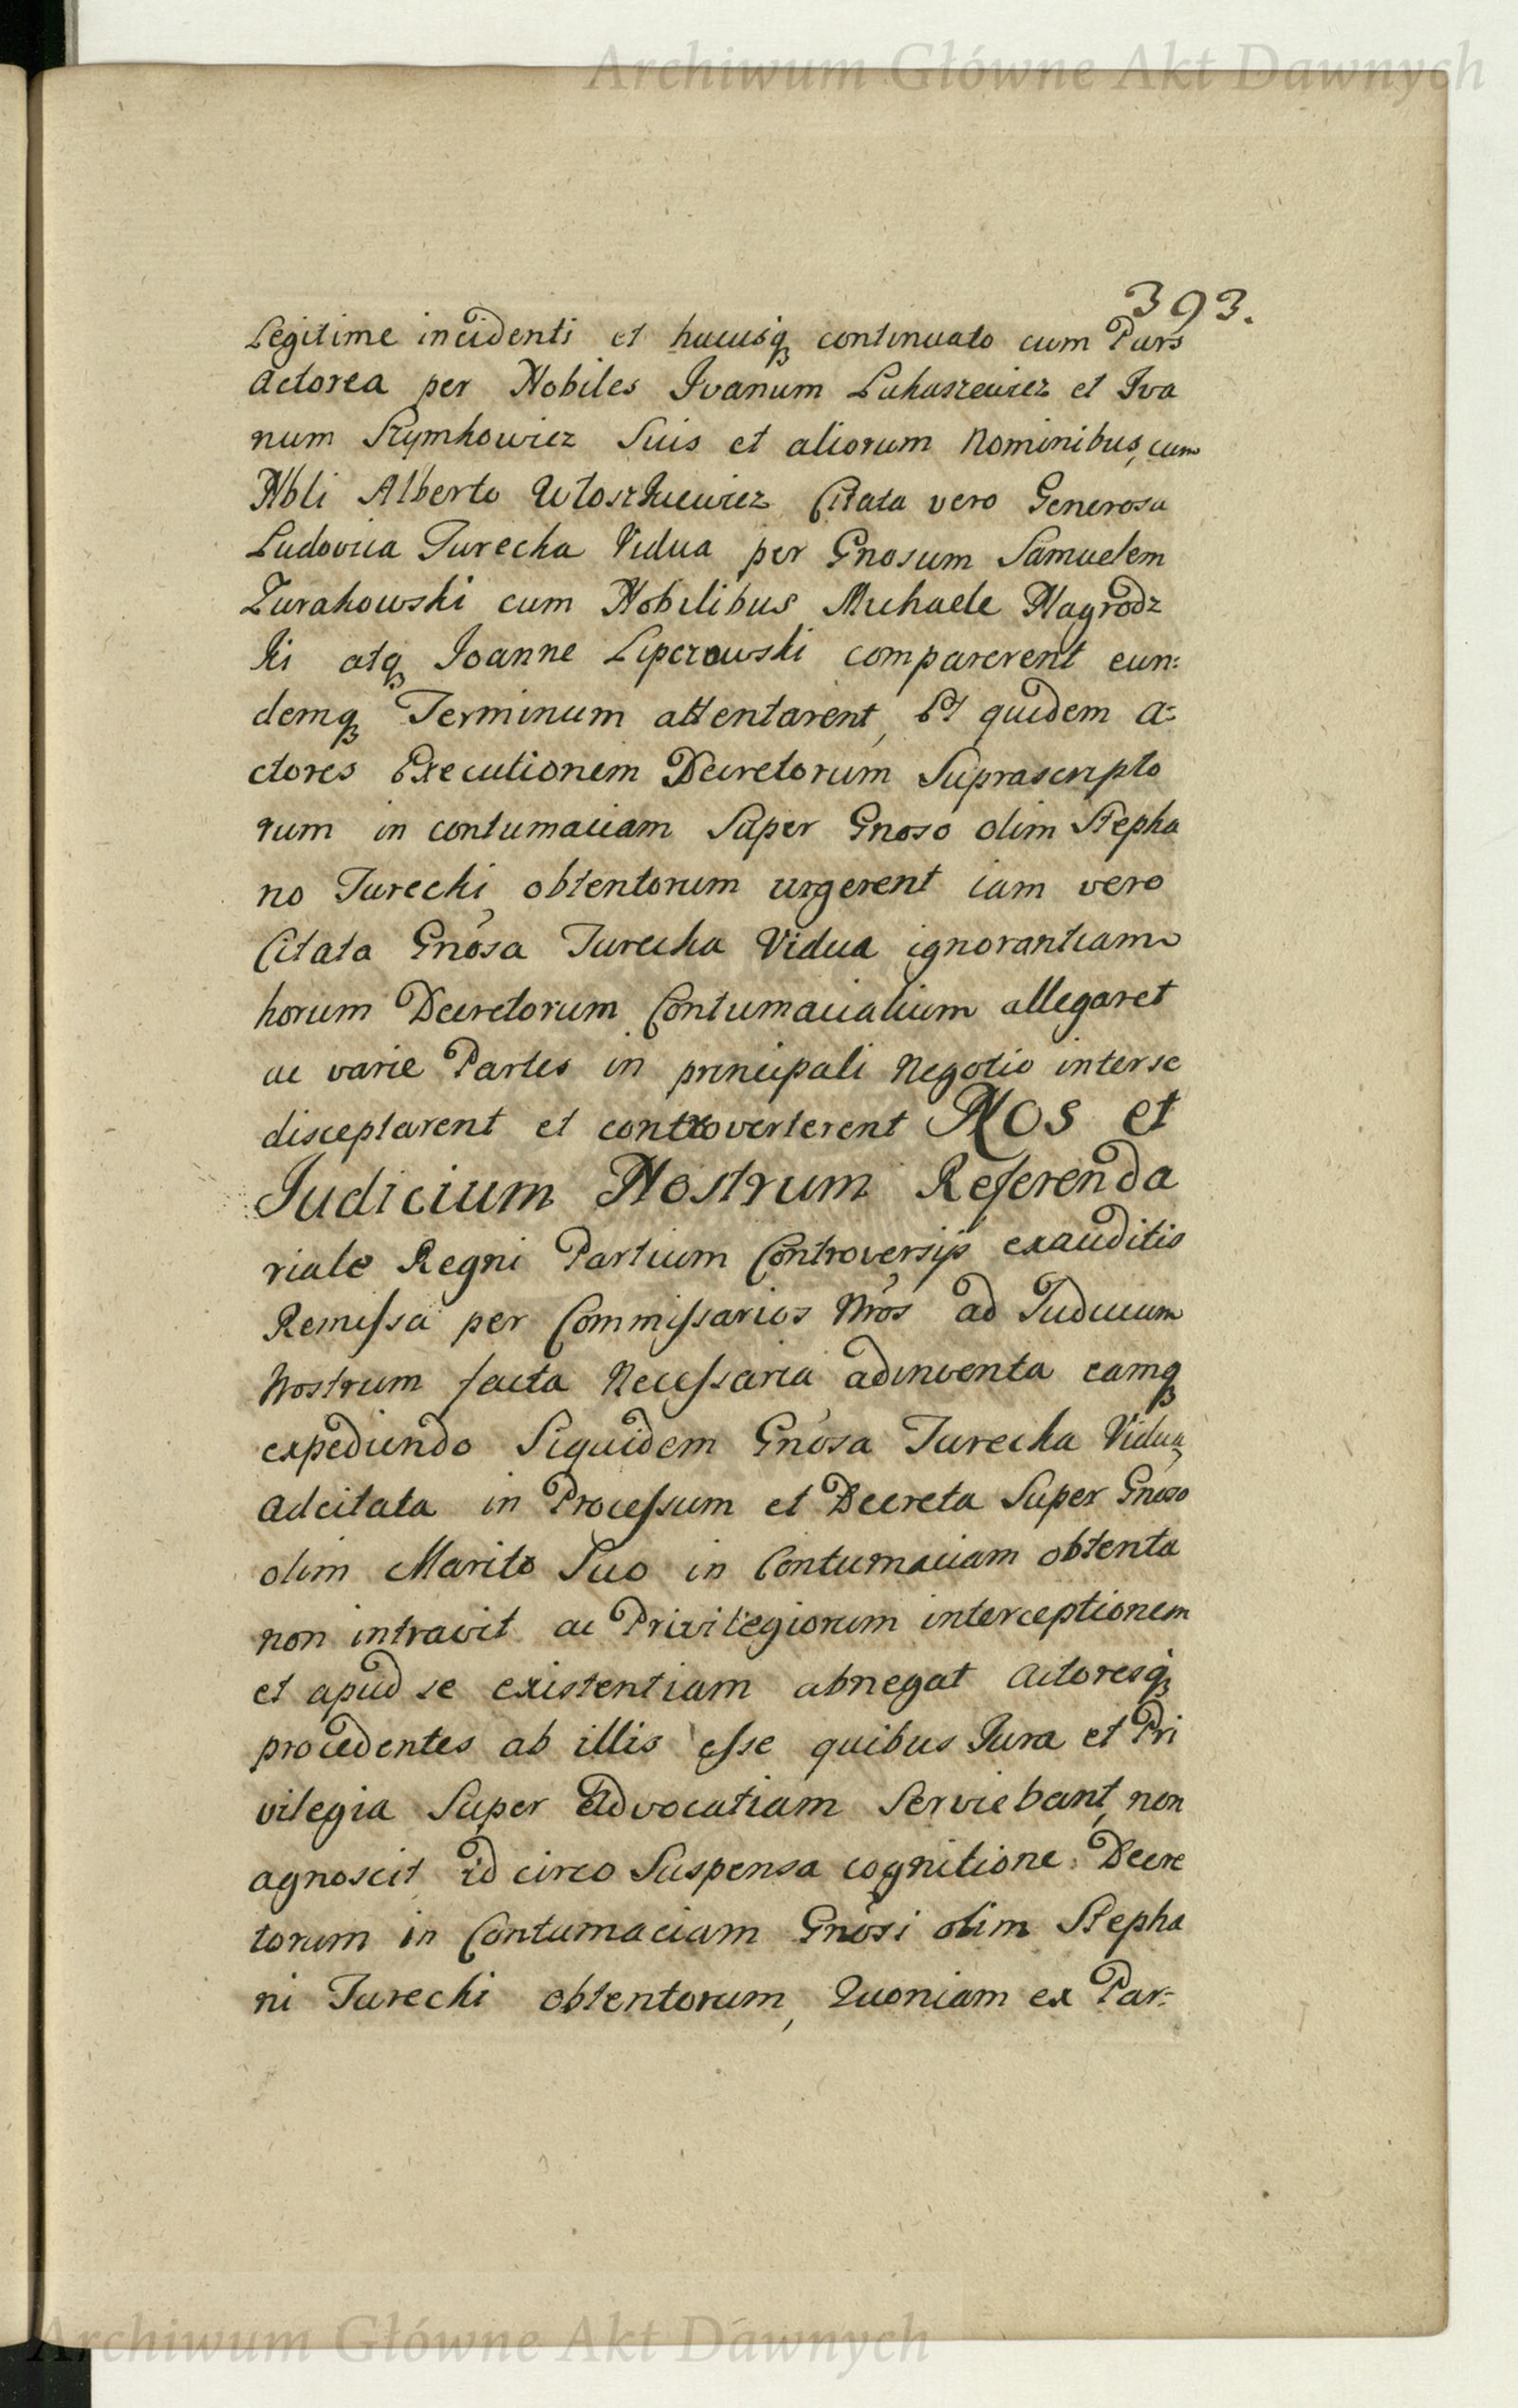 Archiwum Główne Akt Dawnych
393.
Legitime incidenti et hucusq continuato cum Pars
Actorea per Nobiles Ivanum Lukaszewicz et Iva
num Szymkowicz Suis et aliorum Nominibus, cum
Nbli Alberto Włoszkiewicz Citata vero Generosa
Ludovica Turecka Vidua per Gnosum Samuelem
Zurakowski cum Nobilibus Michaele Nagrodz
ki atq Joanne Liperowski comparerent eun:
demq Terminum attentarent, Et quidem A:
ctores Executionem Decretorum Suprascripto
rum in contumaciam Super Gnoso olim Stepha
no Turecki obtentorum urgerent iam vero
Citata Gnosa Turecka Vidua ignorantiam
horum Decretorum Contumacialium allegaret
ac varie Partes in principali Negotio interse
disceptarent et controverterent NOS et
Judicium Nostrum Referenda
riale Regni Partium Controversijs exauditis
Remissa per Commissarios Nros ad Judicium
Nostrum facta Necessaria adinventa eamq
expediendo Siquidem Gnosa Turecka Vidua,
Adcitata in Processum et Decreta Super Gnoso
olim Marito Suo in Contumaciam obtenta
non intravit ac Privilegiorum interceptionem
et apud se existentiam abnegat Actoresq
procedentes ab illis esse quibus Jura et Pri
vilegia Super Advocatiam Serviebant, non
agnoscit id circo Suspensa cognitione Decre
torum in Contumaciam Gnosi olim Stepha
ni Turecki obtentorum, Quoniam ex Par:
Archiwum Główne Akt Dawnych